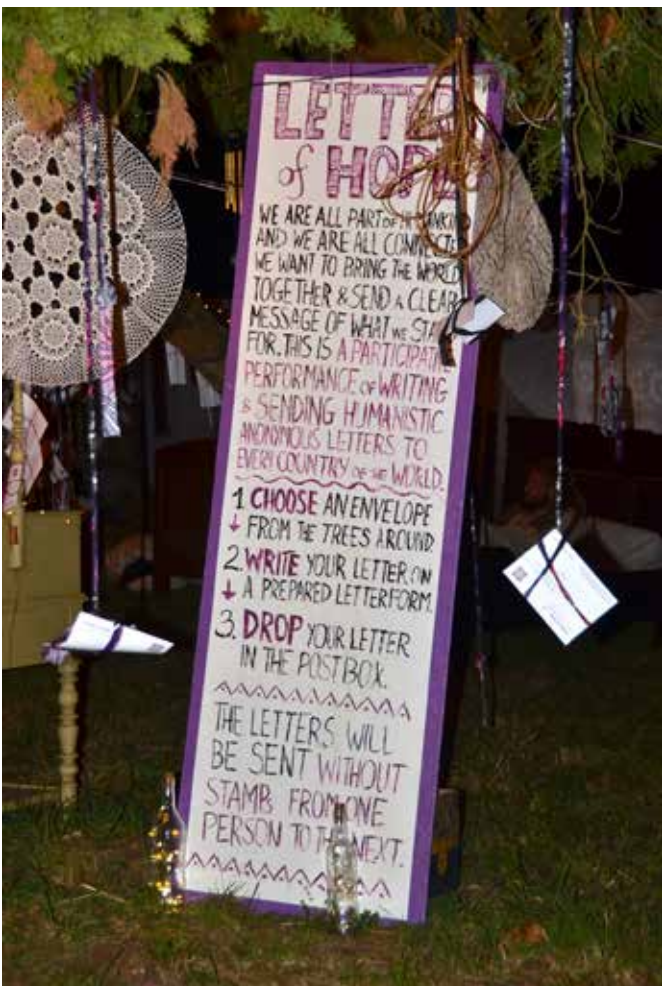 LETTER
of HOPE
WE ARE ALL PART OF
AND WE ARE ALL CONNECTED
WE WANT TO BRING THE WORLD
TOGETHER & SEND A CLEAR
MESSAGE OF WHAT WE STAND
FOR. THIS IS A
PERFORMANCE OF WRITING
& SENDING HUMANISTIC
ANONYMOUS LETTERS TO
EVERY COUNTRY OF THE WORLD.
1 CHOOSE AN ENVELOPE
FROM THE TREES AROUND.
2. WRITE YOUR LETTER ON
A PREPARED LETTERFORM.
3. DROP YOUR LETTER
IN THE POSTBOX.
THE LETTERS WILL
BE SENT WITHOUT
STAMPS FROM ONE
PERSON TO THE NEXT.